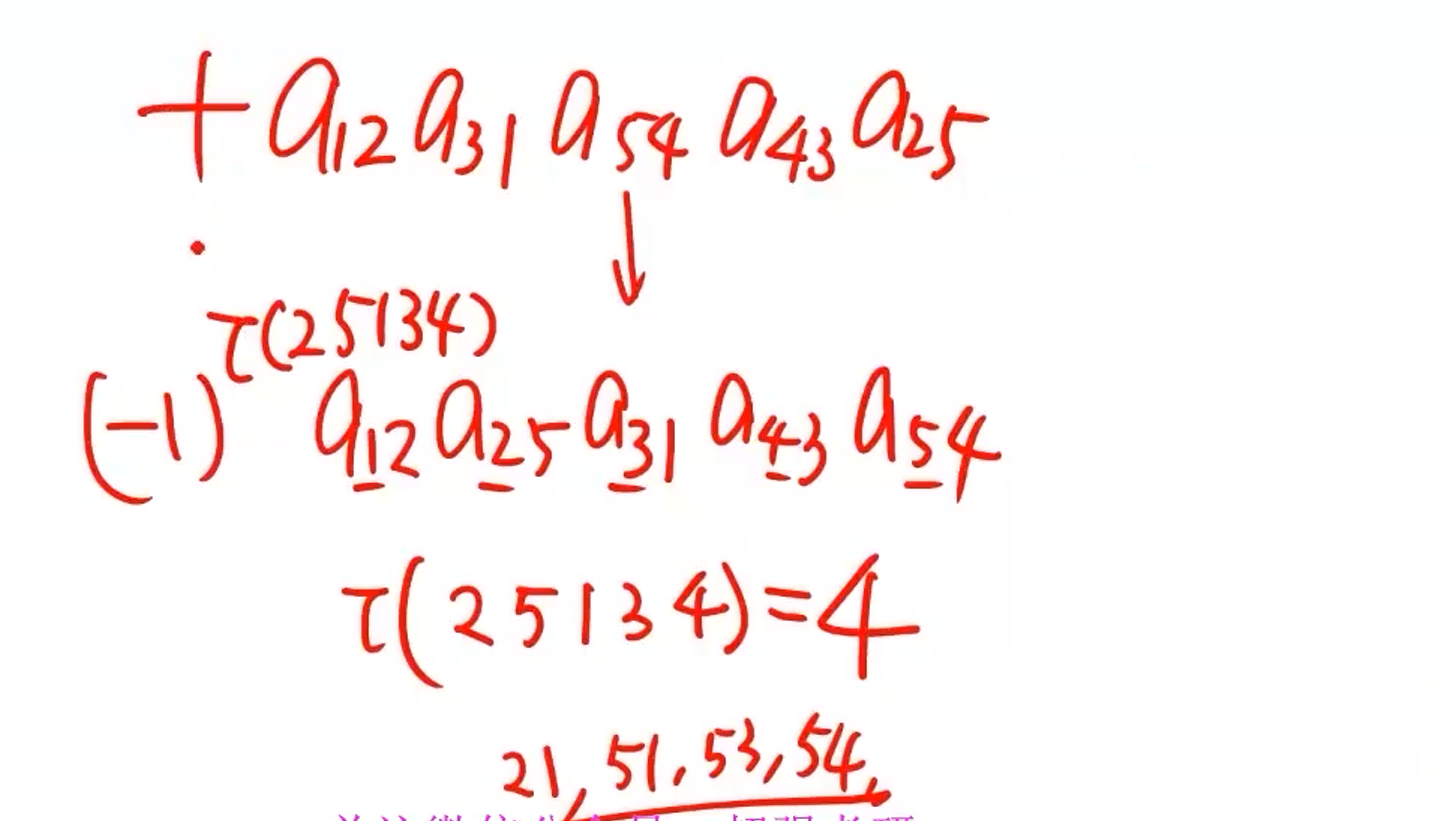 + a₁₂ a₃₁ a₅₄ a₄₃ a₂₅
↓
(-1)^τ(25134) a₁₂ a₂₅ a₃₁ a₄₃ a₅₄
τ(25134)=4
21, 51, 53, 54,